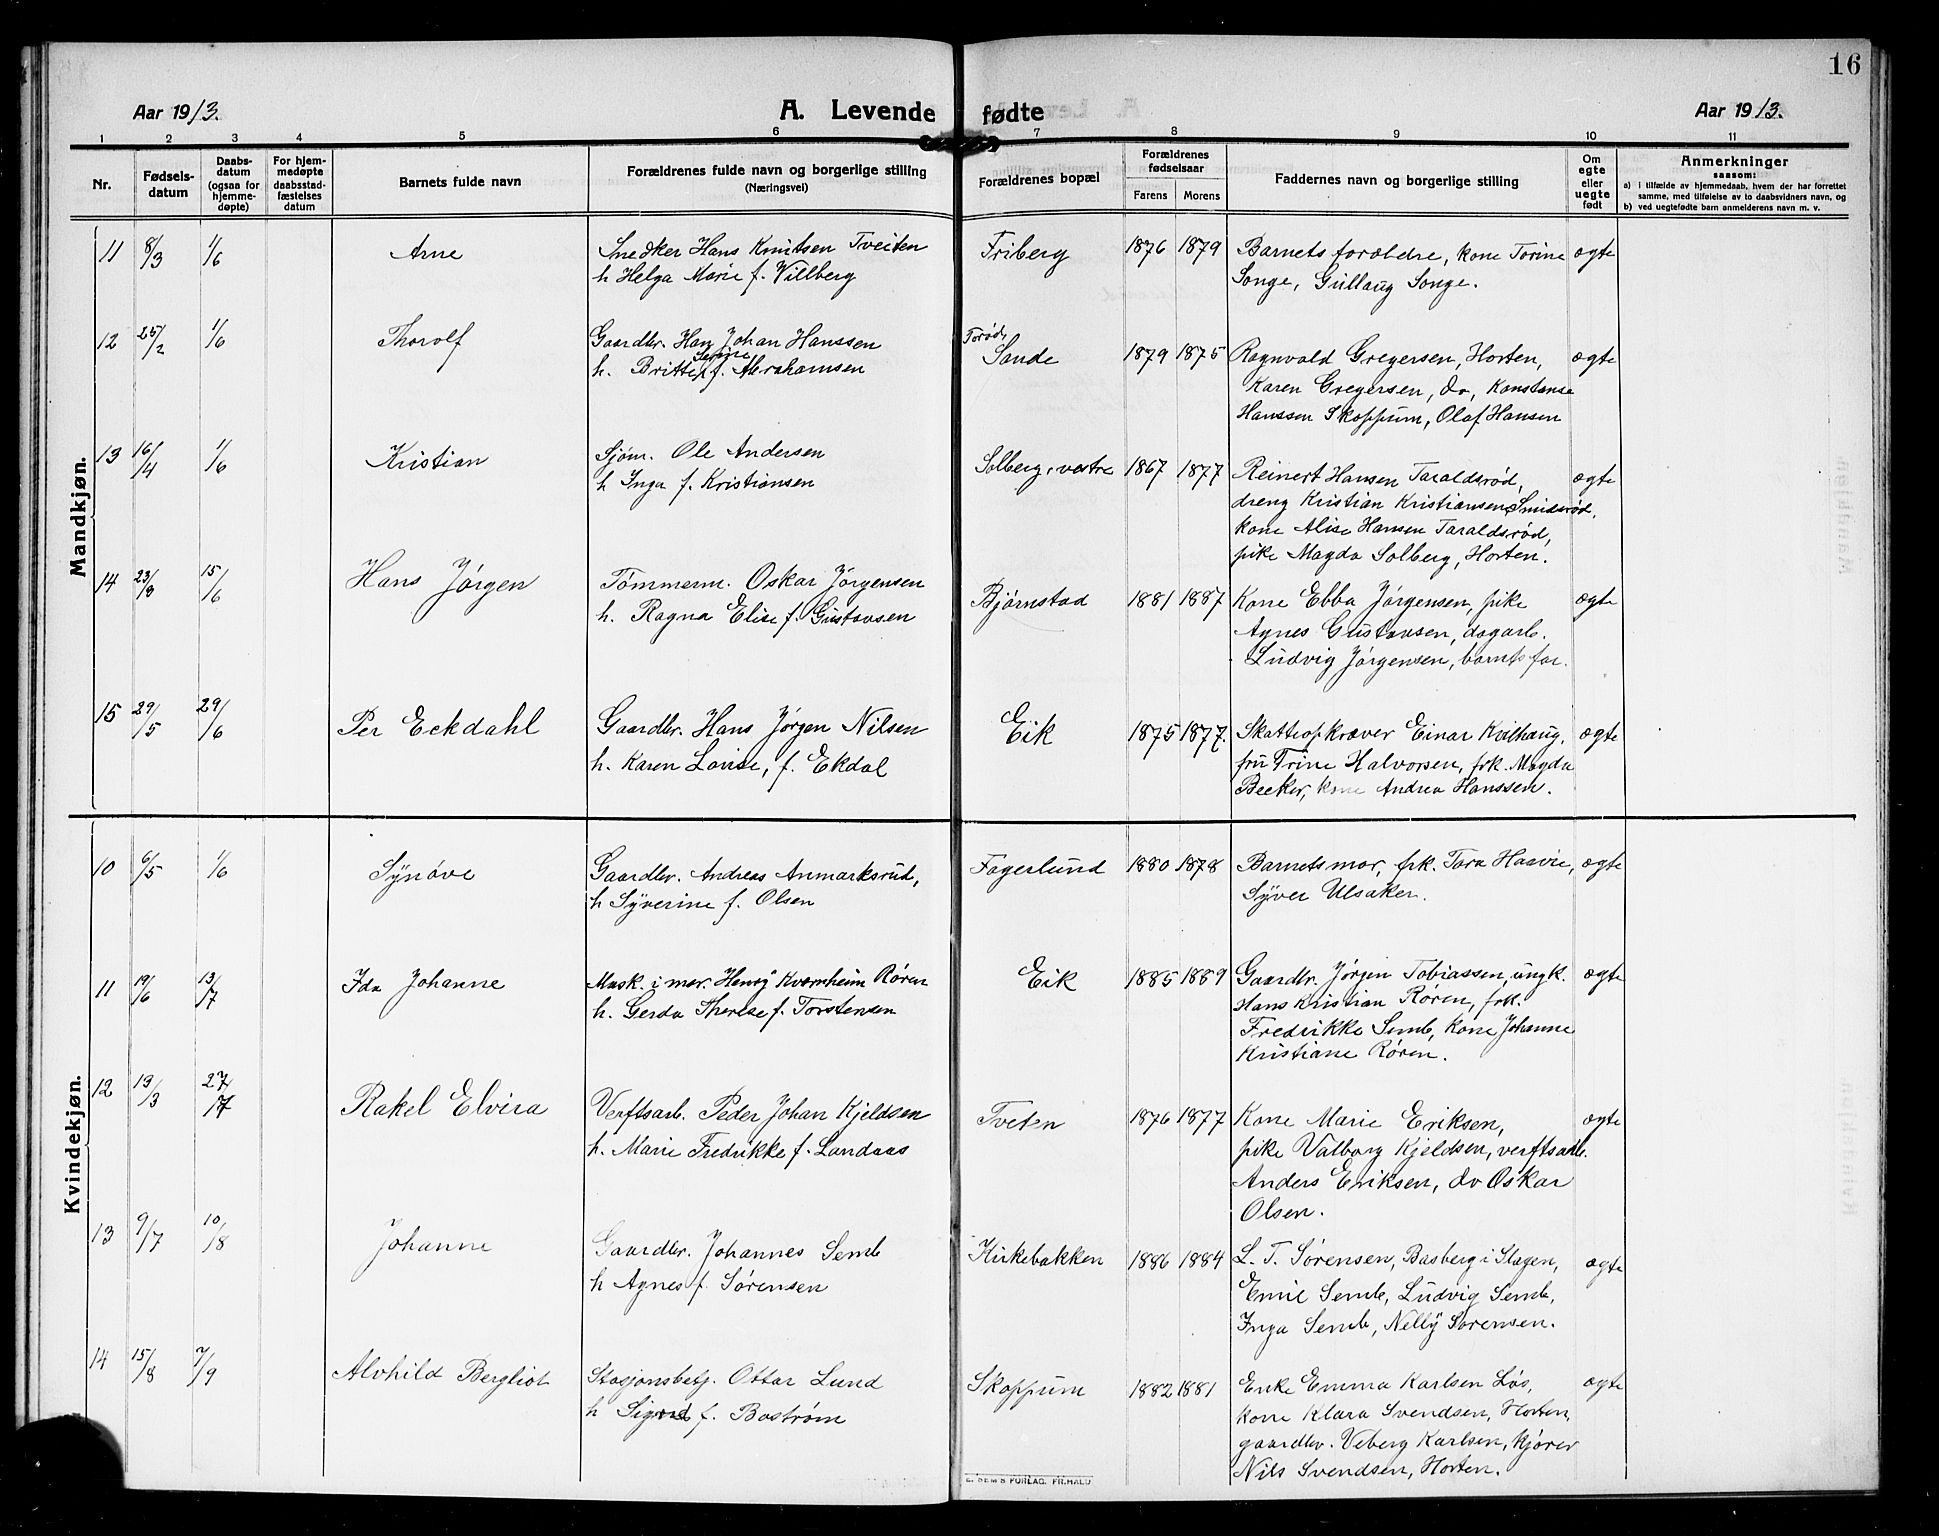 16
Aar 1913.
A. Levende fødte
Aar 1913.
1 2 3 4 5 6 7 8 9 10 11
Nr.
Fødsels-
datum
Daabs-
datum
(ogsaa for
hjemme-
døpte)
For hjem-
medøpte
daabsstad-
fæstelses
datum
Barnets fulde navn
Forældrenes fulde navn og borgerlige stilling
(Næringsvei)
Forældrenes bopæl
Forældrenes
fødselsaar
Farens Morens
Faddernes navn og borgerlige stilling
Om
egte
eller
uegte
født
Anmerkninger
saasom:
a) i tilfælde av hjemmedaab, hvem der har forrettet
samme, med tilføielse av to daabsvidners navn, og
b) ved uegtefødte barn anmelderens navn m. v.
Mandkjøn.
11 8/3 1/6 Arne
Snedker Hans Knutsen Tveiten
h Helga Marie f. Villberg
Friberg 1876 1879
Barnets forældre, kone Torine
Songe, Gullaug Songe.
ægte
12 25/2 1/6 Thorolf
Gaardbr. Hans Johan Hanssen
Serine
h. Britte f. Abrahamsen
Torød,
Sande 1879 1875
Ragnvald Gregersen, Horten,
Karen Gregersen, do, Konstanse
Hanssen Skoppum, Olaf Hansen
ægte
13 16/4 1/6 Kristian
Sjøm. Ole Andersen
h Inga f. Kristiansen
Solberg, vestre 1867 1877
Reinert Hansen Taraldsrød,
dreng Kristian Kristiansen Smidsrød,
kone Alise Hansen Taraldsrød,
pike Magda Solberg, Horten.
ægte
14 23/3 15/6 Hans Jørgen
Tømmerm. Oskar Jørgensen
h. Ragna Elise f. Gustavsen
Bjørnstad 1881 1887
Kone Ebba Jørgensen, pike
Agnes Gustavsen, dagarb.
Ludvig Jørgensen, barnts far.
ægte
15 29/5 29/6 Per Eckdahl
Gaardbr. Hans Jørgen Nilsen
h. Karen Lovise, f. Ekdal
Eik 1875 1877.
Skatteopkræver Einar Kvilhaug,
fru Trine Halvorsen, frk. Magda
Becker, kone Andrea Hanssen.
ægte
Kvindekjøn.
10 6/5 1/6 Synøve
Gaardbr. Andreas Anmarksrud,
h Syverine f. Olsen
Fagerlund 1880 1878
Barnets mor, frk. Tora Haavie,
Syver Ulsaker.
ægte
11 19/6 13/7 Ida Johanne
Mask. i mar. Henry Kvarnheim Røren
h. Gerda Therese f. Torstensen
Eik 1885 1889
Gaardbr. Jørgen Tobiassen, ungk.
Hans Kristian Røren, frk.
Fredrikke Semb, kone Johanne
Kristiane Røren.
ægte
12 13/3 27/7 Rakel Elvira
Verftsarb. Peder Johan Kjeldsen
h. Marie Fredrikke f. Landaas
Tveten 1876 1877
Kone Marie Eriksen,
pike Valborg Kjeldsen, verftsarb.
Anders Eriksen, do Oskar
Olsen.
ægte
13 9/7 10/8 Johanne
Gaardbr. Johannes Semb
h Agnes f. Sørensen
Kirkebakken 1886 1884
L. T. Sørensen, Basberg i Slagen,
Emil Semb, Ludvig Semb,
Inga Semb, Nelly Sørensen.
ægte
14 15/8 7/9 Alvhild Bergliot
Stasjonsbetj. Ottar Lund
h Sigrid f. Bostrøm
Skoppum 1882 1881
Enke Emma Karlsen Løs,
kone Klara Svendsen, Horten,
gaardbr. Veberg Karlsen, kjører
Nils Svendsen, Horten.
ægte
E. SEM'S FORLAG. FR.HALD